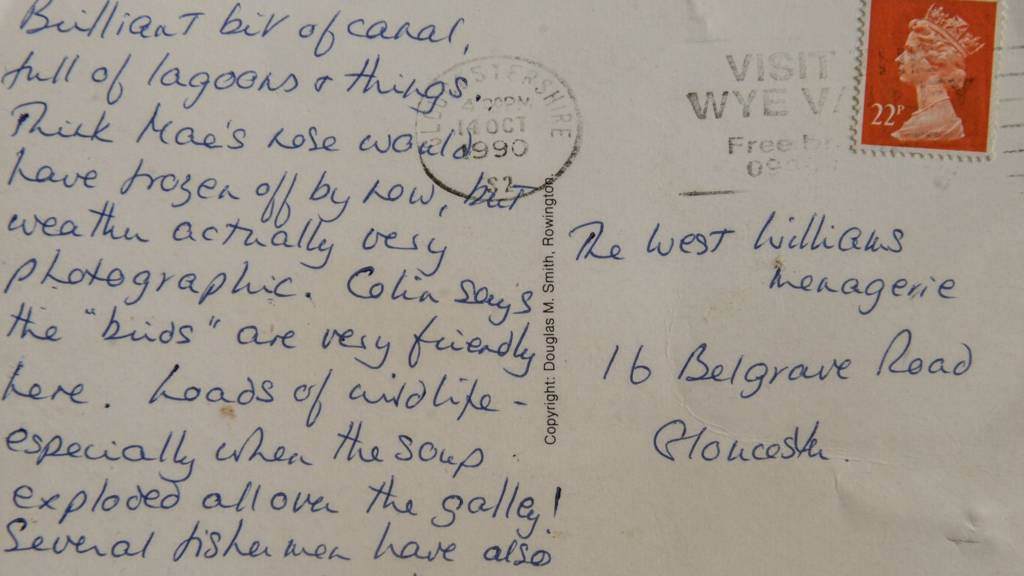 Brilliant bit of canal,
full of lagoons & things.
Think Mae's nose would
have frozen off by now, but
weather actually very
photographic. Colin says
the "birds" are very friendly
here. Loads of wildlife -
especially when the soup
exploded all over the galley!
Several fishermen have also
STERSHIRE
4.30PM
14 OCT
1990
S2
Copyright: Douglas M. Smith, Rowington.
VISIT
WYE VA
Free br
09
22P
The West Williams
Menagerie
16 Belgrave Road
Gloucester.